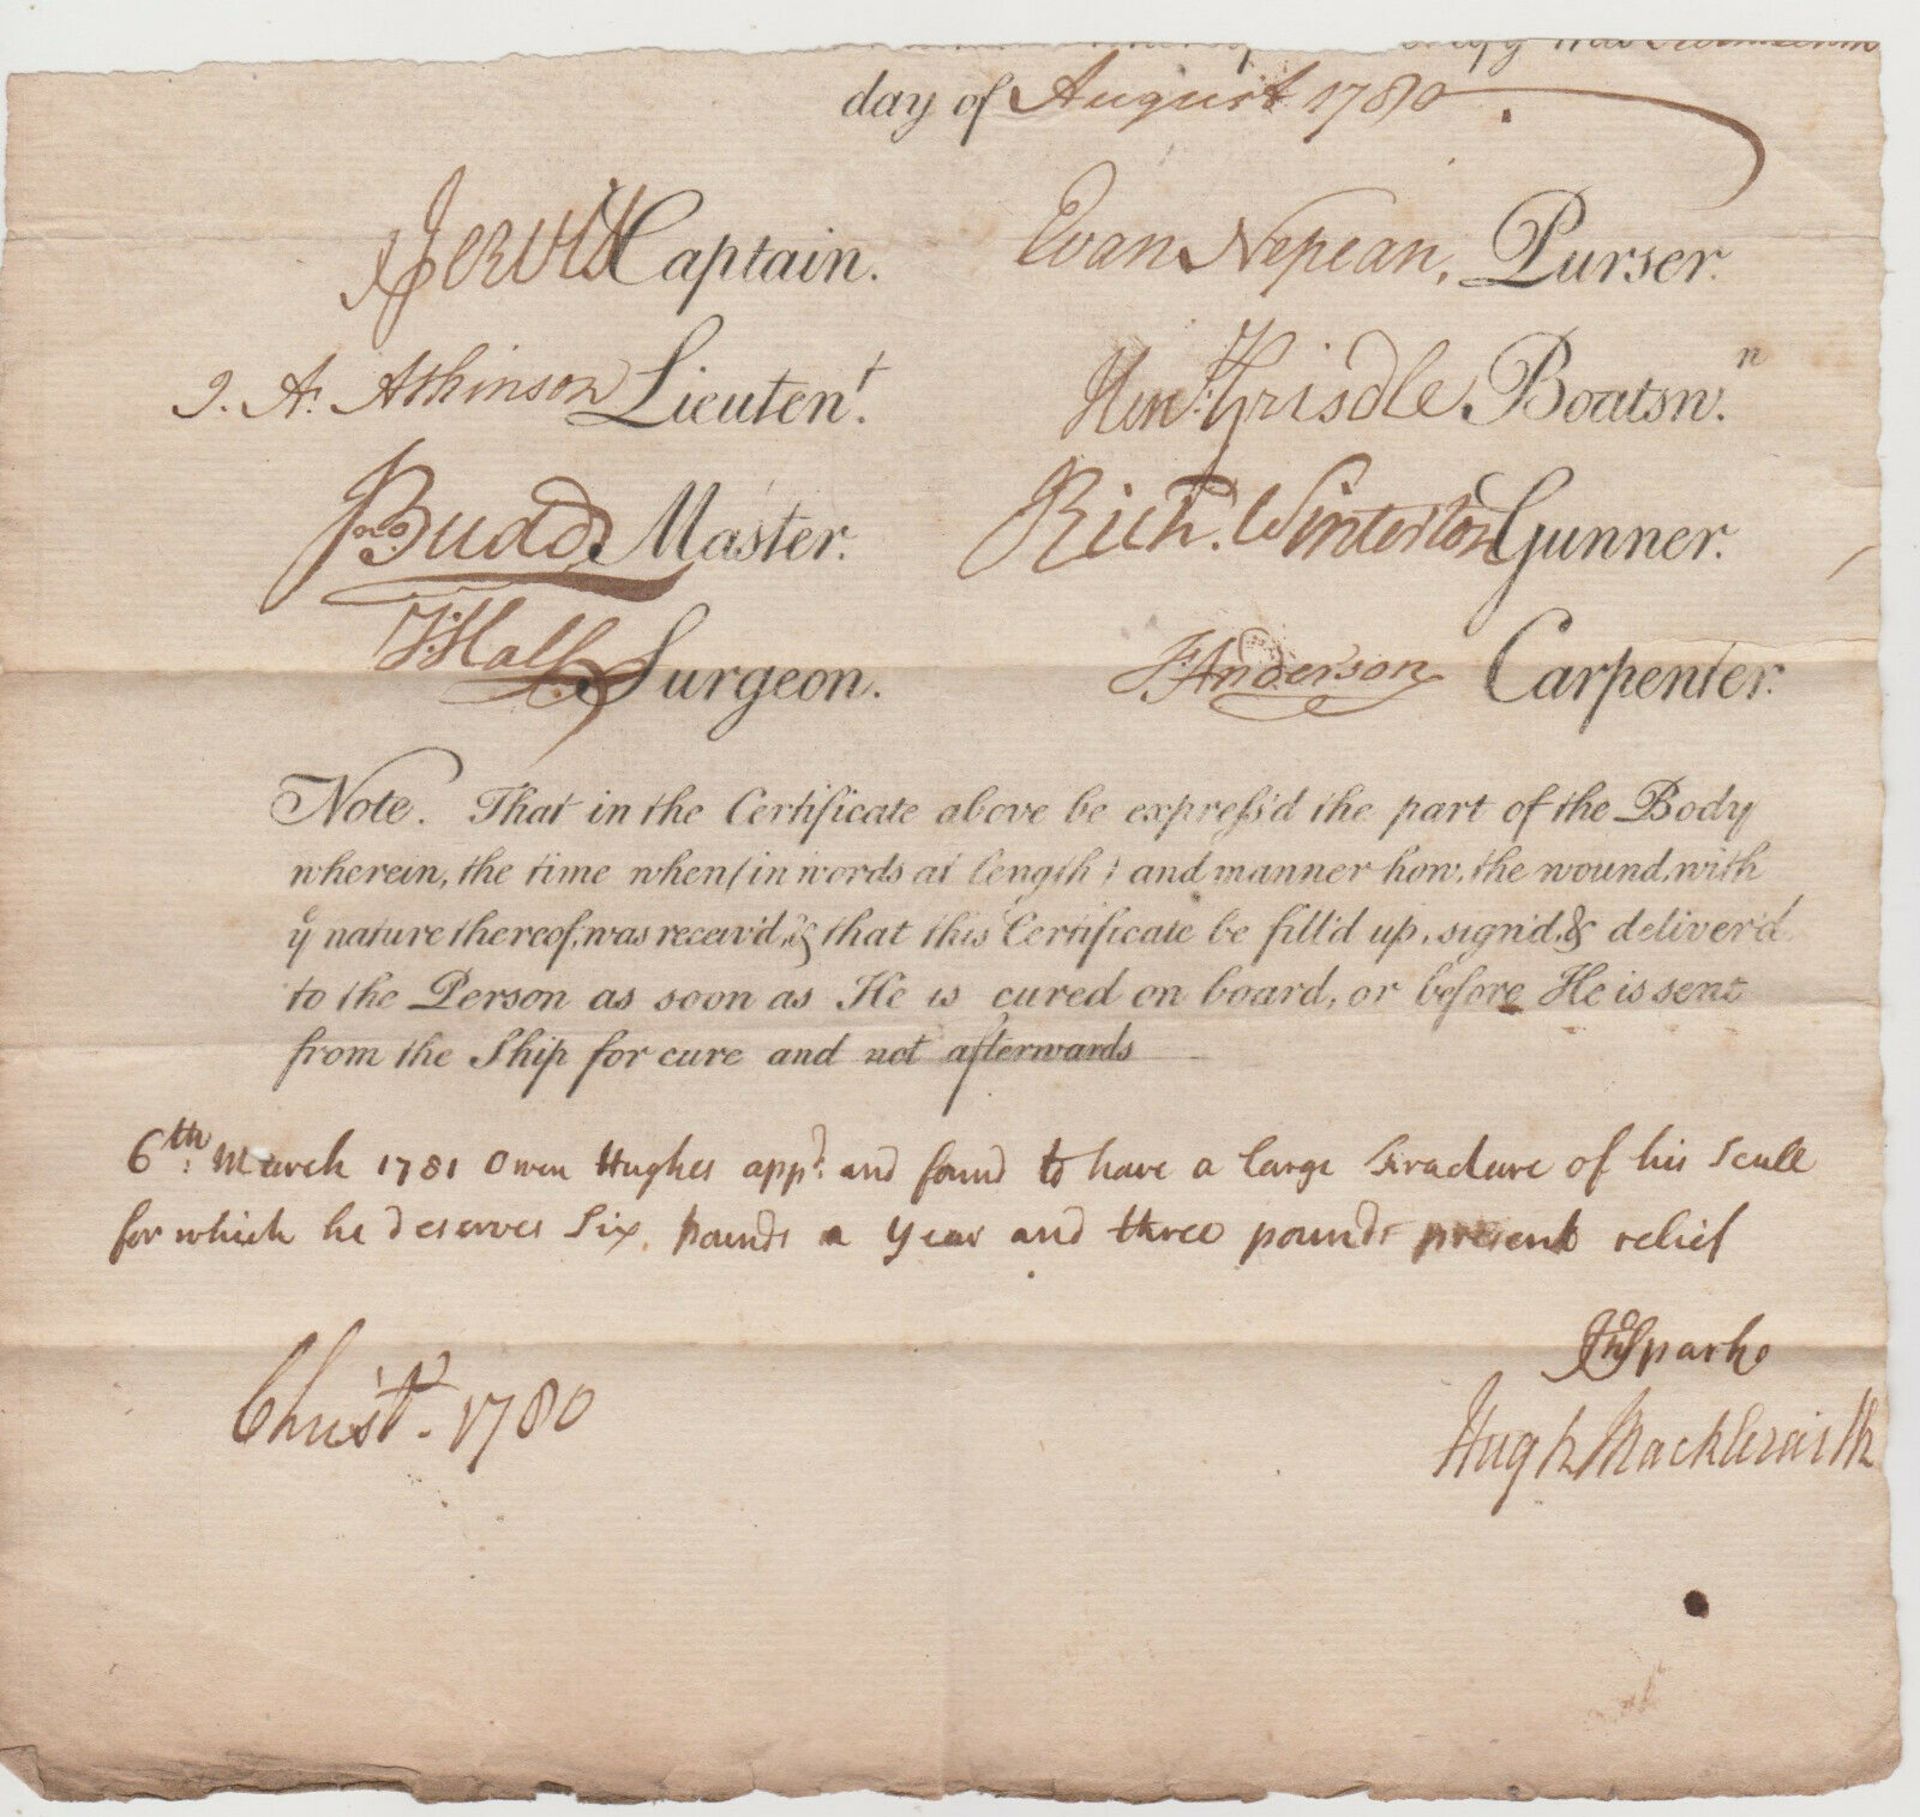 day of August 1780
Jervis Captain. Evan Nepean, Purser.
J. A. Atkinson Lieuten.t Hen: Grisdle Boatsn.n
Budd Master. Rich. Winterton Gunner.
T: Hall Surgeon. J: Anderson Carpenter.
Note. That in the Certificate above be expreſs'd the part of the Body
wherein, the time when (in words at length) and manner how, the wound, with
ye nature thereof, was receiv'd, & that this Certificate be fill'd up, sign'd, & deliver'd
to the Person as soon as He is cured on board, or before He is sent
from the Ship for cure and not afterwards
6th: March 1781 Owen Hughes appd: and found to have a large fracture of his Scull
for which he deserves Six pounds a year and three pounds present relief
Jno Sparke
Christ. 1780
Hugh